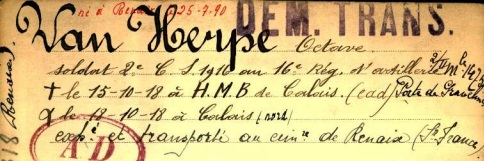 né à Renaix 25-7-90
DEM. TRANS.
Van Herpe Octave
soldat 2e C. S. 1916 au 16e Rég. d'artillerie
† le 15-10-18 à H.M.B de Calais. (cad) Porte de
le 18-10-18 à Calais (nord)
exp. et transporté au cim.re de Renaix (St. France)
AD